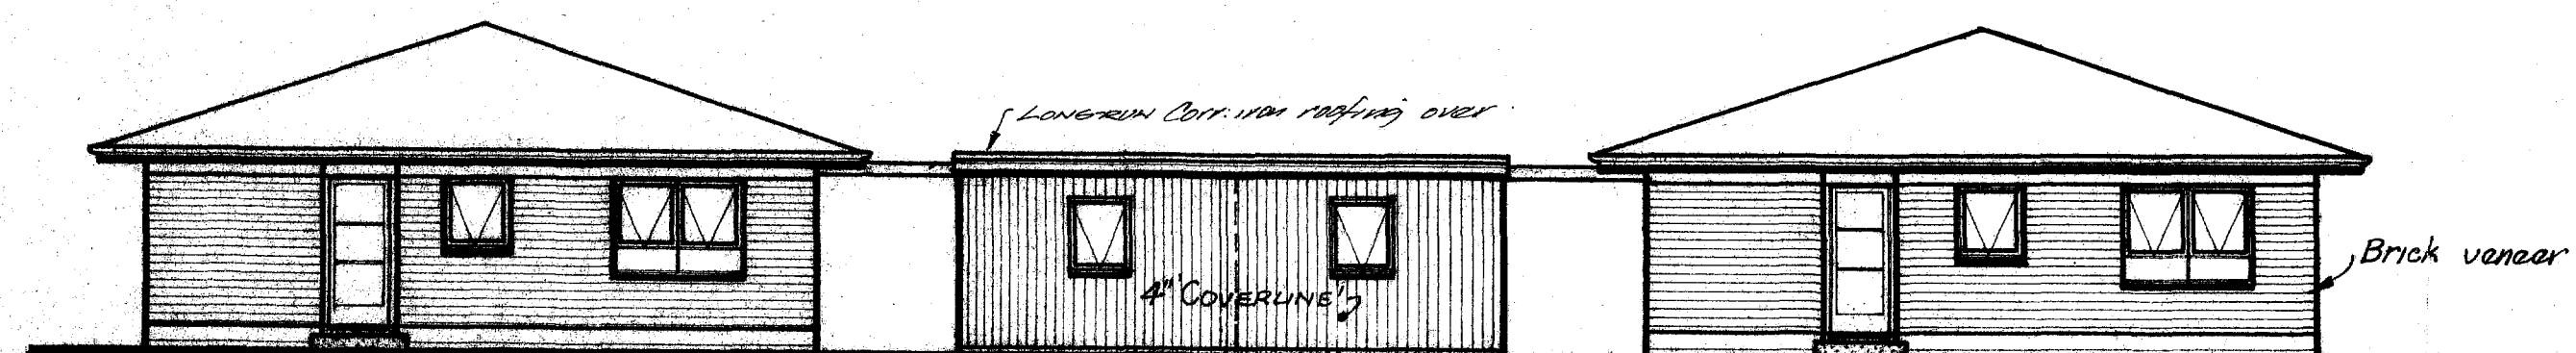 LONGRUN Corr: iron roofing over
4" 'COVERLINE'
Brick veneer